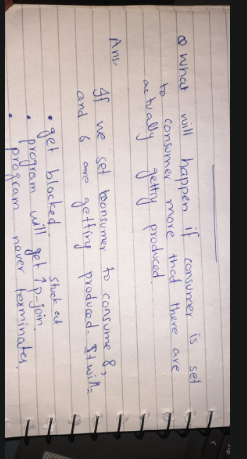 Q What will happen if consumer is set
to consumer more that there are
actually getting produced.
Ans.
If we set consumer to consume 8,
and 6 are getting produced It will:
• get blocked
stuck at
• program will get ↑ p-join.
• program never terminates.